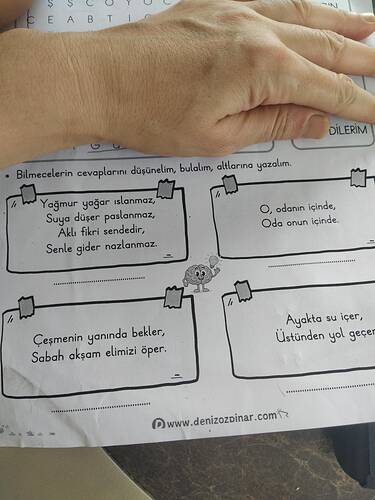 Ş S C O Y O C
C E A B T I
G U
DİLERİM
• Bilmecelerin cevaplarını düşünelim, bulalım, altlarına yazalım.
Yağmur yağar ıslanmaz,
Suya düşer paslanmaz,
Aklı fikri sendedir,
Senle gider nazlanmaz.
O, odanın içinde,
Oda onun içinde.
Çeşmenin yanında bekler,
Sabah akşam elimizi öper.
Ayakta su içer,
Üstünden yol geçer
www.denizozpinar.com